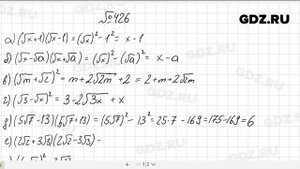 GDZ.RU
№ 426
а) (√x+1)(√x-1) = (√x)² - 1² = x - 1
б) (√x-√a)(√x+√a) = (√x)² - (√a)² = x - a
в) (√m+√2)² = m + 2√2m + 2 = 2 + m + 2√2m
г) (√3-√x)² = 3 - 2√3x + x
д) (5√7-13)(5√7+13) = (5√7)² - 13² = 25·7 - 169 = 175 - 169 = 6
е) (2√2+3√3)(2√2-3√3) -
GDZ.RU